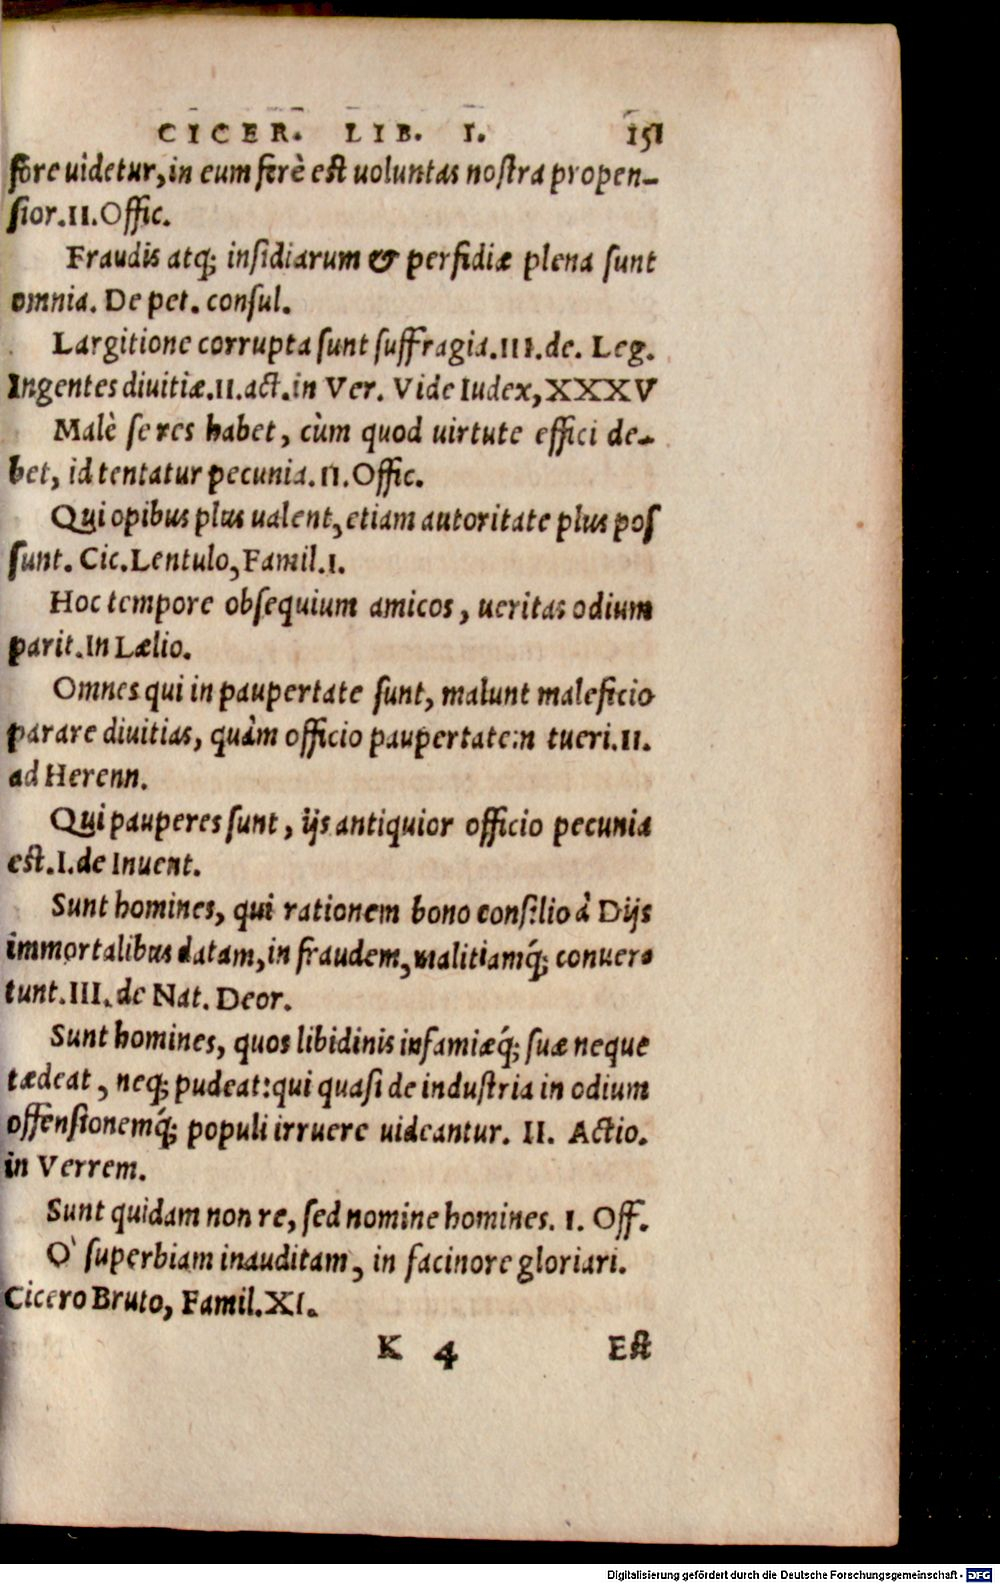 CICER. LIB. I. 151
fore uidetur, in eum ferè est uoluntas nostra propen-
sior. II. Offic.
Fraudis atq; insidiarum & perfidiæ plena sunt
omnia. De pet. consul.
Largitione corrupta sunt suffragia. III. de. Leg.
Ingentes diuitiæ. II. act. in Ver. Vide Iudex, XXXV
Malè se res habet, cùm quod uirtute effici de-
bet, id tentatur pecunia. II. Offic.
Qui opibus plus ualent, etiam autoritate plus pos
sunt. Cic. Lentulo, Famil. I.
Hoc tempore obsequium amicos, ueritas odium
parit. In Lælio.
Omnes qui in paupertate sunt, malunt maleficio
parare diuitias, quàm officio paupertatem tueri. II.
ad Herenn.
Qui pauperes sunt, ijs antiquior officio pecunia
est. I. de Inuent.
Sunt homines, qui rationem bono consilio à Dijs
immortalibus datam, in fraudem, malitiamq́; conuer-
tunt. III. de Nat. Deor.
Sunt homines, quos libidinis infamiæq́; suæ neque
tædeat, neq; pudeat: qui quasi de industria in odium
offensionemq́; populi irruere uideantur. II. Actio.
in Verrem.
Sunt quidam non re, sed nomine homines. I. Off.
O' superbiam inauditam, in facinore gloriari.
Cicero Bruto, Famil. XI.
K 4 Est
Digitalisierung gefördert durch die Deutsche Forschungsgemeinschaft - DFG